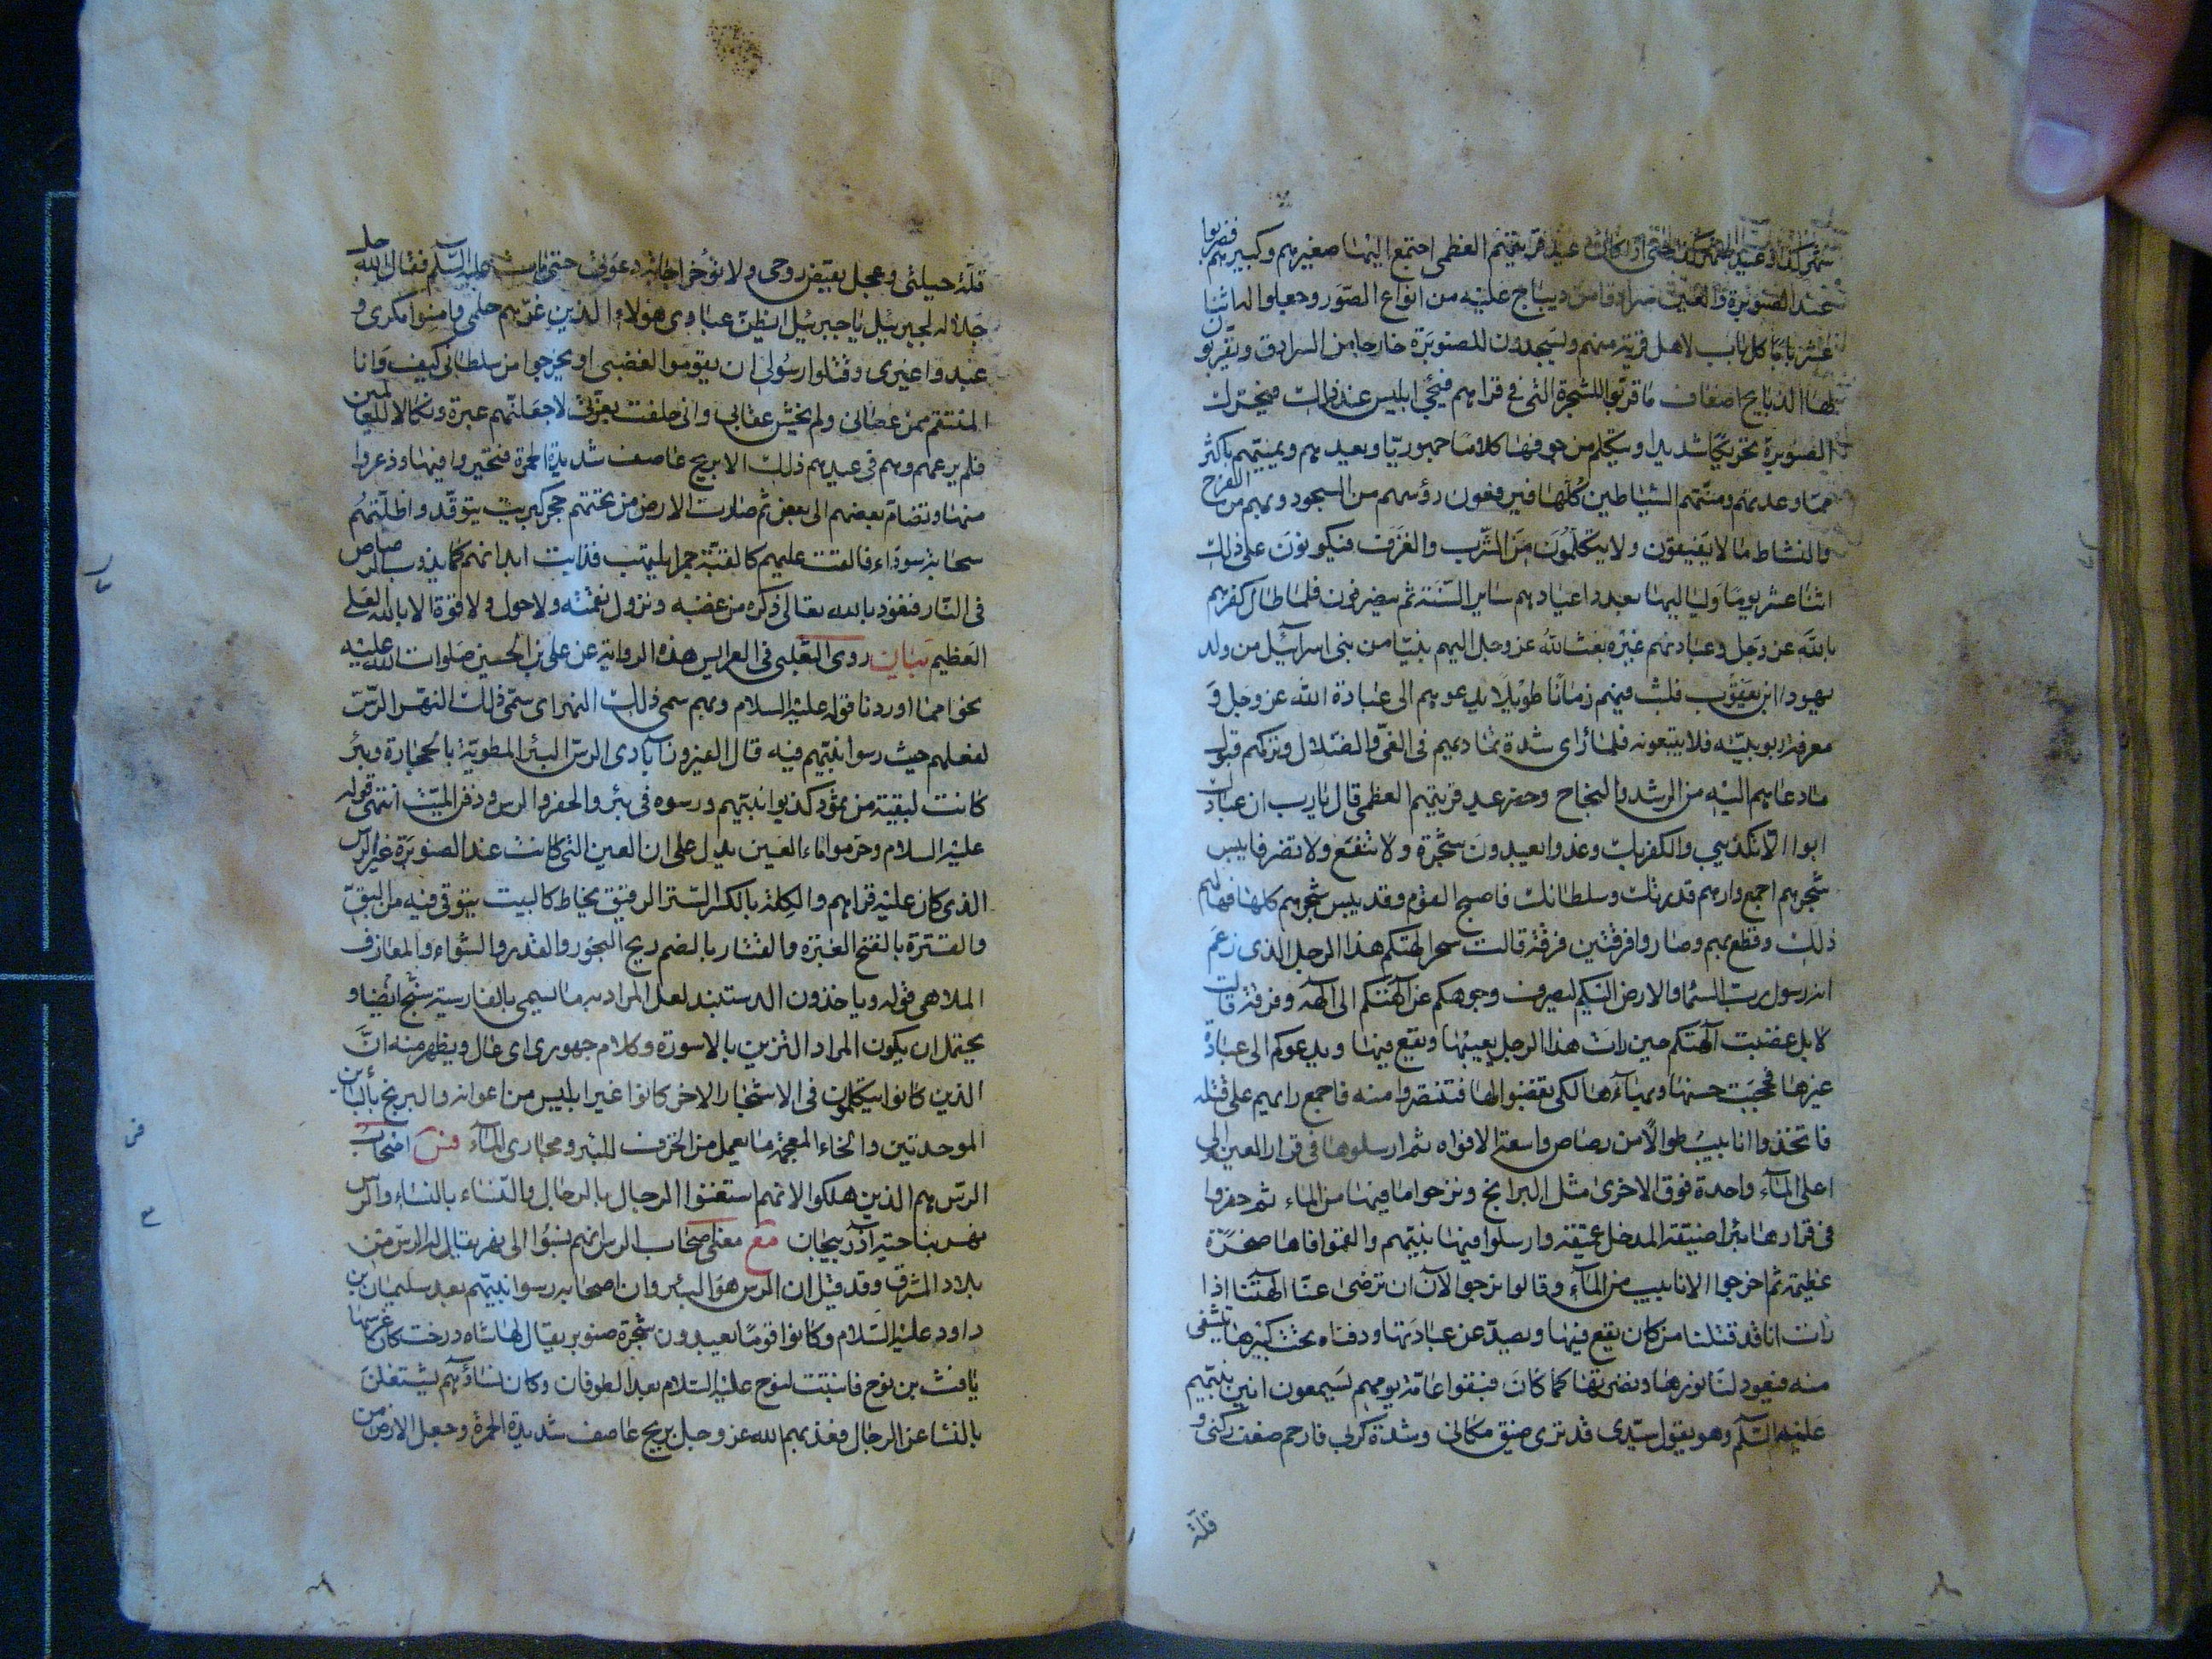 عيد قريتهم العظمى اجتمع اليها صغيرهم وكبيرهم فضربوا
عند الصنوبرة والعين سرادقا من ديباج عليه من انواع الصور وجعلوا له اثنا
عشر بابا كل باب لاهل قرية منهم ويسجدون للصنوبرة خارجا من السرادق ويقربون
لها الذبايح اضعاف ما قربوا للشجرة التى فى قراهم فيجئ ابليس عند ذلك فيحرك
الصنوبرة تحريكا شديدا ويتكلم من جوفها كلاما جهوريا ويعدهم ويمنيهم باكثر
مما وعدتهم ومنتهم الشياطين كلها فيرفعون رؤسهم من السجود وبهم من الفرح
والنشاط ما لا يفيقون ولا يتكلمون من الشرب والعزف فيكونون على ذلك
اثنا عشر يوما ولياليها بعدد اعيادهم ساير السنة ثم ينصرفون فلما طال كفرهم
بالله عز وجل وعبادتهم غيره بعث الله عز وجل اليهم نبيا من بنى اسرائيل من ولد
يهودا ابن يعقوب فلبث فيهم زمانا طويلا يدعوهم الى عبادة الله عز وجل و
معرفة ربوبيته فلا يتبعونه فلما راى شدة تماديهم فى الغى والضلال وتركهم قبول
ما دعاهم اليه من الرشد والنجاح وحضر عيد قريتهم العظمى قال يا رب ان عبادك
ابوا الا تكذيبى والكفر بك وغدوا يعبدون شجرة ولا تنفع ولا تضر فايبس
شجرهم اجمع وارهم قدرتك وسلطانك فاصبح القوم وقد يبس شجرهم كلها فهالهم
ذلك وقطع بهم وصاروا فرقتين فرقة قالت سحر الهتكم هذا الرجل الذى زعم
انه رسول رب السماء والارض اليكم ليصرف وجوهكم عن آلهتكم الى آلهه وفرقة قالت
لا بل غضبت آلهتكم حين رات هذا الرجل يعيبها ويقع فيها ويدعوكم الى عبادة
غيرها فحجبت حسنها وبهاءها لكى تغضبوا لها فتنتصروا منه فاجمع رايهم على قتله
فاتخذوا انابيب طوالا من رصاص واسعة الافواه ثم ارسلوها فى قرار العين الى
اعلى الماء واحدة فوق الاخرى مثل البرابخ ونزحوا ما فيها من الماء ثم حفروا
فى قرارها بئرا ضيقة المدخل عميقة وارسلوا فيها نبيهم والقموا فاها صخرة
عظيمة ثم اخرجوا الانابيب من الماء وقالوا نرجوا الآن ان ترضى عنا الهتنا اذا
رات انا قد قتلنا من كان يقع فيها ويصد عن عبادتها ودفناه تحت كبيرها يتشفى
منه فيعود لنا نورها ونضرتها كما كان فبقوا عامة يومهم يسمعون انين نبيهم
عليه السلم وهو يقول سيدى قد ترى ضيق مكانى وشدة كربى فارحم ضعف ركنى و
قلة
قلة حيلتى وعجل بقبض روحى ولا تؤخر اجابة دعوتى حتى مات عليه السلم فقال الله جل
جلاله لجبرئيل يا جبرئيل ايظن عبادى هؤلاء الذين غرهم حلمى وامنوا مكرى و
عبدوا غيرى وقتلوا رسولى ان يقوموا لغضبى او يخرجوا من سلطانى كيف وانا
المنتقم ممن عصانى ولم يخش عقابى وانى حلفت بعزتى لاجعلنهم عبرة ونكالا للعالمين
فلم يرعهم وهم فى عيدهم ذلك الا بريح عاصف شديدة الحمرة فتحيروا فيها وذعروا
منها وتضام بعضهم الى بعض ثم صارت الارض من تحتهم حجر كبريت يتوقد واظلتهم
سحابة سوداء فالقت عليهم كالقبة جمرا يلتهب فذابت ابدانهم كما يذوب الرصاص
فى النار فنعوذ بالله تعالى ذكره من غضبه ونزول نقمته ولا حول ولا قوة الا بالله العلى
العظيم بيان روى الثعلبى فى العرايس هذه الرواية عن على بن الحسين صلوات الله عليه
نحوا مما اوردنا قوله عليه السلام وبهم سمى ذلك النهر اى سمى ذلك النهر الرس
لفعلهم حيث رسوا نبيهم فيه قال الفيروزآبادى الرس البئر المطوية بالحجارة وبئر
كانت لبقية من ثمود كذبوا نبيهم ورسوه فى بئر والحفر والدس ودفن الميت انتهى قوله
عليه السلام وحرموا ماء العين يدل على ان العين التى كانت عند الصنوبرة غير الرس
الذى كان عليه قراهم والكلة بالكسر الستر الرقيق يخاط كالبيت يتوقى فيه من البق
والقترة بالفتح الغبرة والقتار بالضم ريح البخور والقدر والشواء والمعازف
الملاهى قوله وياخذون الدستبند لعل المراد به ما يسمى بالفارسية سنج ايضا و
يحتمل ان يكون المراد التزين بالاسورة وكلام جهورى اى عال ويظهر منه ان
الذين كانوا يتكلمون فى الاشجار الاخر كانوا غير ابليس من اعوانه والبربخ بالبائين
الموحدتين والخاء المعجمة ما يعمل من الخزف للبئر ومجارى الماء فس اصحاب
الرس هم الذين هلكوا لانهم استغنوا الرجال بالرجال والنساء بالنساء والرس
نهر بناحية آذربيجان مع معنى اصحاب الرس انهم نسبوا الى نهر يقال له الرس من
بلاد المشرق وقد قيل ان الرس هو البئر وان اصحابه رسوا نبيهم بعد سليمان بن
داود عليه السلام وكانوا قوما يعبدون شجرة صنوبر يقال لها شاه درخت كان غرسها
يافث بن نوح فانبتت لنوح عليه السلام بعد الطوفان وكان نساؤهم يشتغلن
بالنسا عن الرجال فعذبهم الله عز وجل بريح عاصف شديدة الحمرة وجعل الارض من